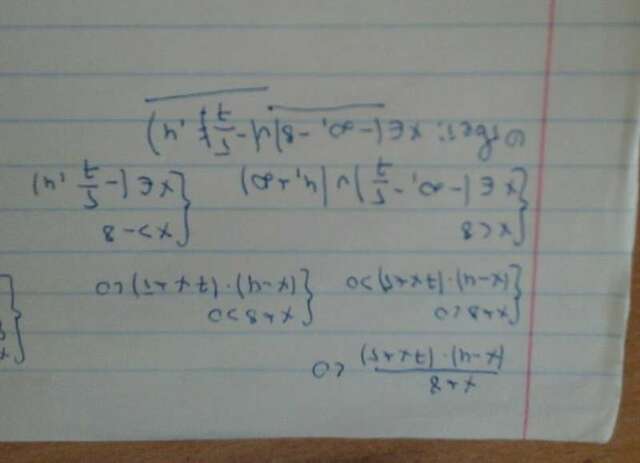 x+8
(x-4)·(7x+5) <0
{x+8<0 {x+8>0
(x-4)·(7x+5)>0 (x-4)·(7x+5)<0
{x<8 {x>-8
x∈(-∞, -5/7)∪(4,+∞) x∈(-5/7, 4)
Ответ: x∈(-∞, -8)∪(-5/7, 4)